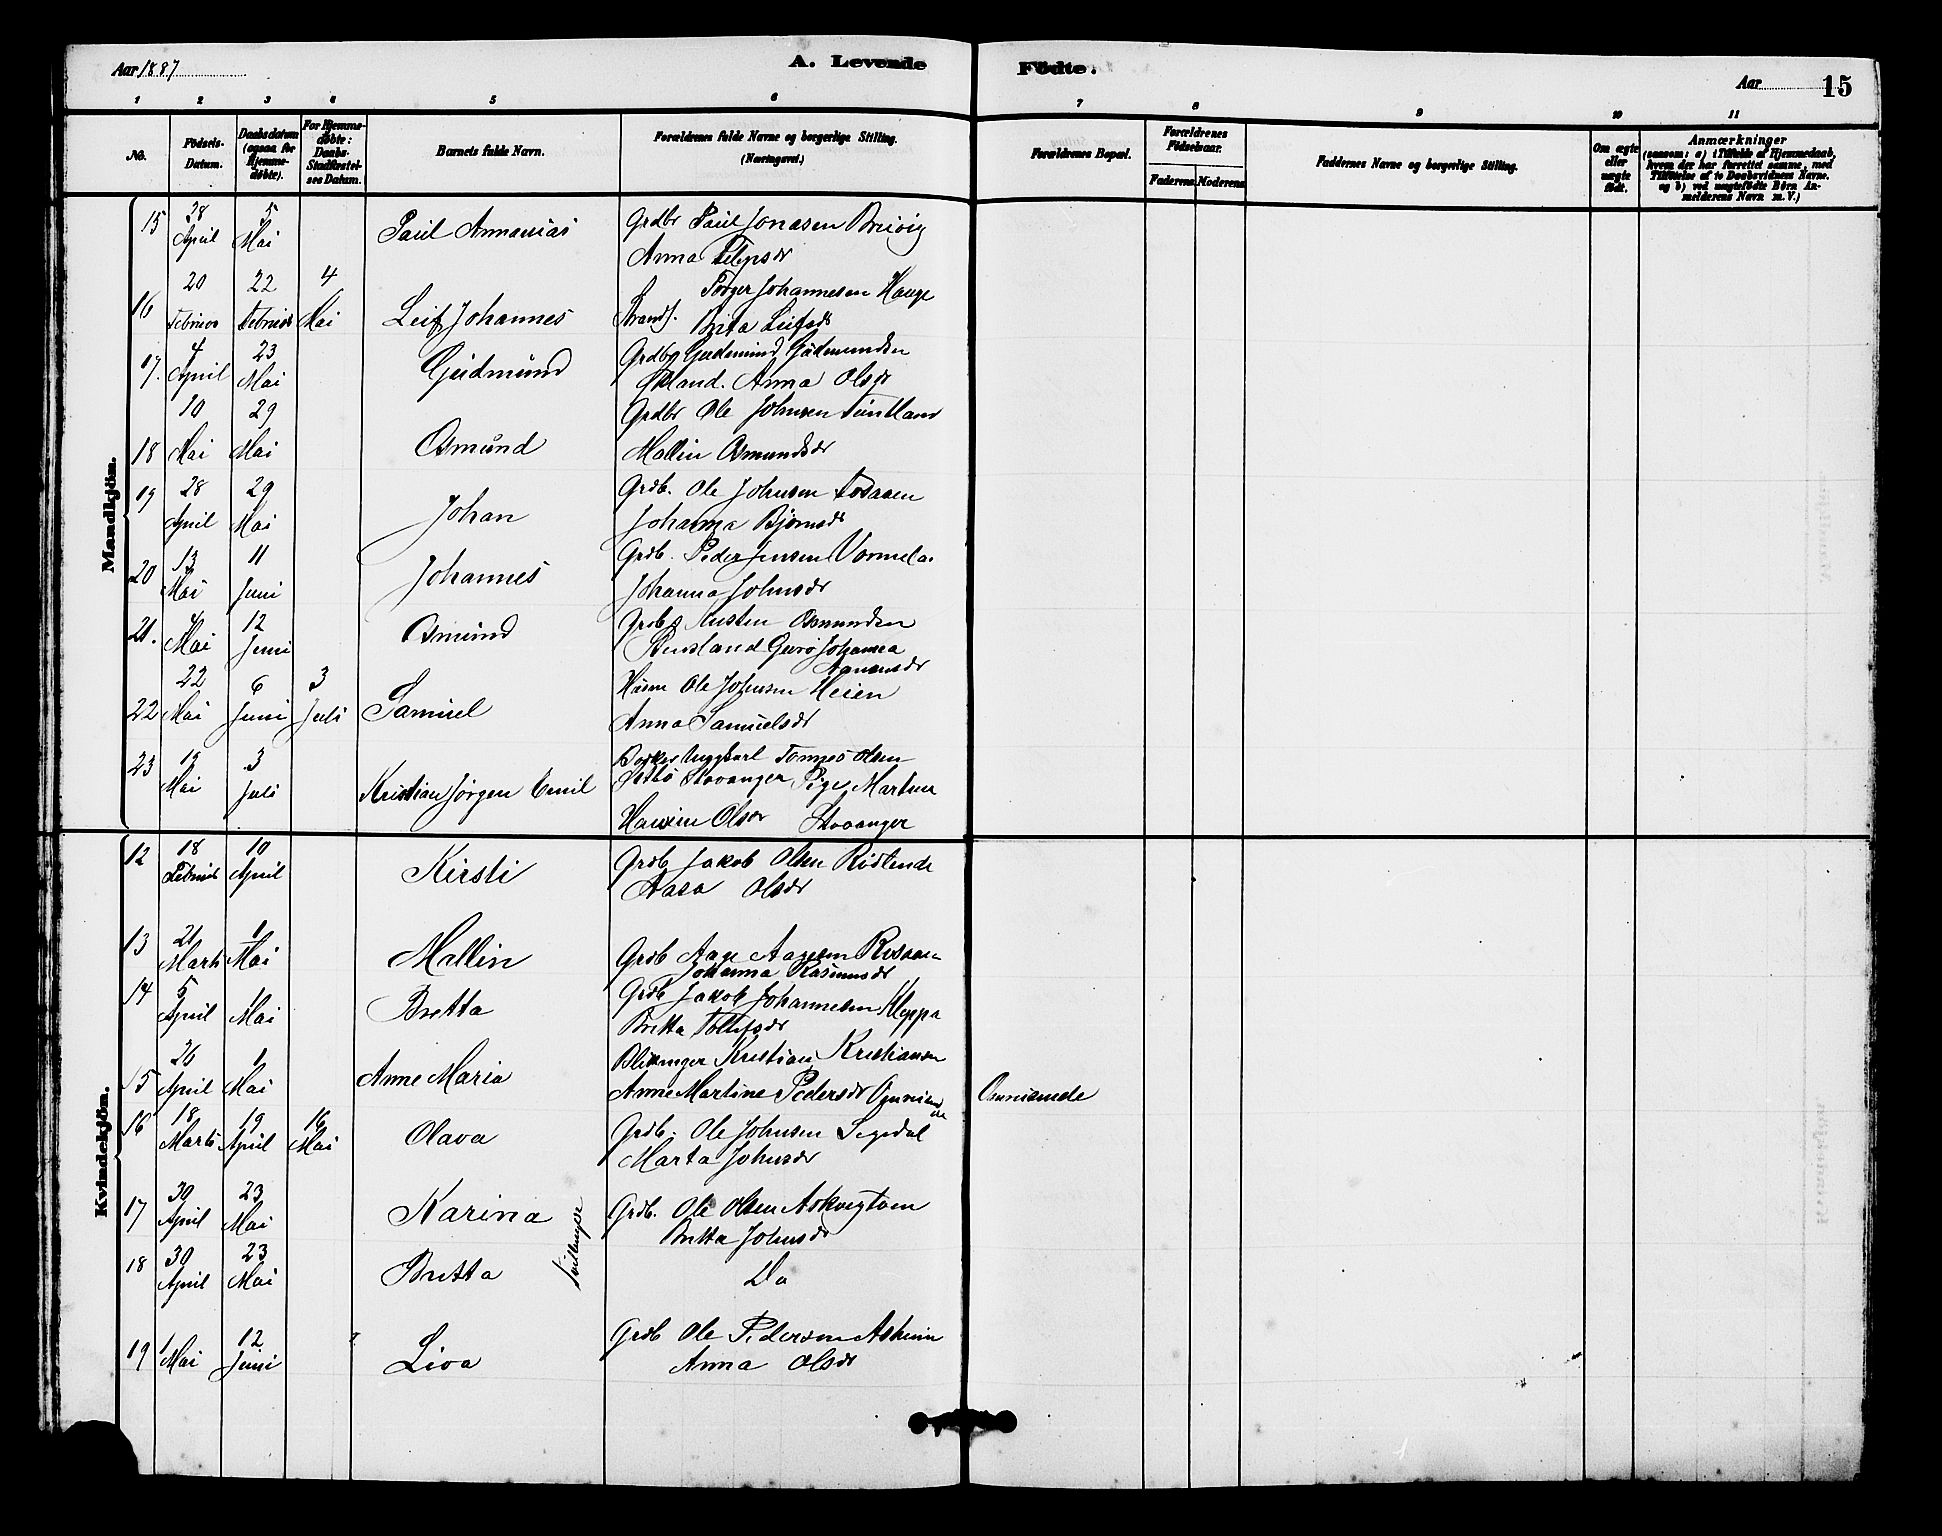 Aar 1887
A. Levende
Födte.
Aar
15
1 2 3 4 5 6 7 8 9 10 11
No.
Födsels-
Datum.
Daabsdatum
(ogsaa for
Hjemme-
döbte).
For Hjemme-
döbte:
Daabs-
Stadfæstel-
ses Datum.
Barnets fulde Navn.
Forældrenes fulde Navne og borgerlige Stilling.
(Næringsvei.)
Forældrenes Bopæl.
Forældrenes
Födselsaar.
Faderens. Moderens.
Faddernes Navne og borgerlige Stilling.
Om ægte
eller
uægte
födt.
Anmærkninger
(saasom: a) i Tilfælde af Hjemmedaab,
hvem der har forrettet samme, med
Tilföielse af to Daabsvidners Navne.
og b) ved uægtefödte Börn An-
melderens Navn m. V.)
Mandkjön.
15 28 April 5 Mai Paul Annanias Grdbr Paul Jonasen
Anna
16 20 Februar 22 Februar 4 Mai Leif Johannes Torger Johannesen Hauge
Strands. Brita Leifsdr
17. 4 April 23 Mai Gudmund Grdbr Gudmund Gudmundsen
Økland. Anna Olsdr
18 10 Mai 29 Mai Osmund Grdbr Ole Johnsen Tuntland
Mallin Osmundsdr
19 28 April 29 Mai Johan Grdb. Ole Johnsen
Johanna Bjørnsdr
20 13 Mai 11 Juni Johannes Grdb. Peder Jensen Vormela.
Johanna Johnsdr
21. 4 Mai 12 Juni Osmund Grdb Osmundsen
Johanna
22 22 Mai 6 Juni 3 Juli Samuel Husm Ole Johnsen Heien
Anna Samuelsdr
23 19 Mai 3 Juli Kristian Jørgen Emil Ungkarl Olsen
Stavanger Pige
Olsdr Stavanger
Kvindekjön.
12 18 Februar 10 April Kirsti Grdb Jakob Olsen
Aasa Olsdr
13 21 Marts 1 Mai Mallin Grdb Aage Aagesen
Johanna Rasmusdr
14 5 April 1 Mai Bretta Grdb Jakob Johannesen Kleppa
Bretta Tollefsdr
15 26 April 1 Mai Anne Maria Blikanger Kristian Kristiansen
Anne Martine Pedersdr
Omnisande
16 18 Marts 19 April 16 Mai Olava Grdb. Ole Johnsen Segedal
Marta Johnsdr
17 30 April 23 Mai Karina Grdb. Ole Olsen Askvigtoen
Bretta Johnsdr
Tvillinger
18 30 April 23 Mai Bretta Do
19 1 Mai 12 Juni Liva Grdb Ole Pedersen Askvin
Anna Olsdr